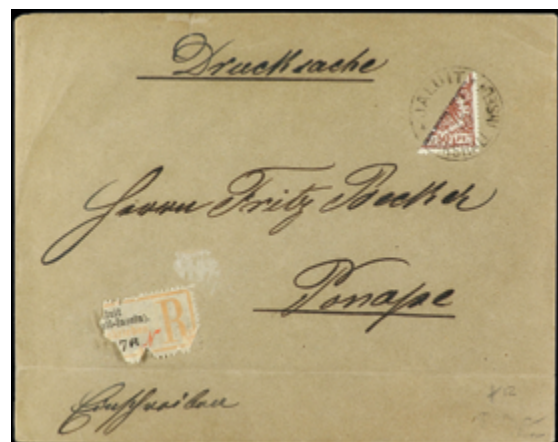 Drucksache
JALUIT
Herrn Fritz Becker
Ponape
R
Einschreiben